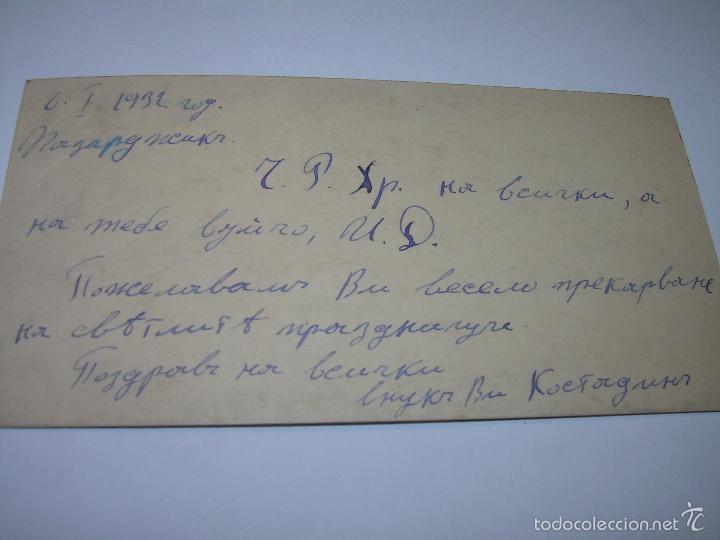 6. I. 1932. год.
Пазарджикъ.
Ч. Р. Хр. на всички, а
на тебе вуйчо, И. Д.
Пожелавамъ Ви весело прекарване
на свѣтлитѣ празднични.
Поздравъ на всички
внукъ Ви Костадинъ
todocoleccion.net